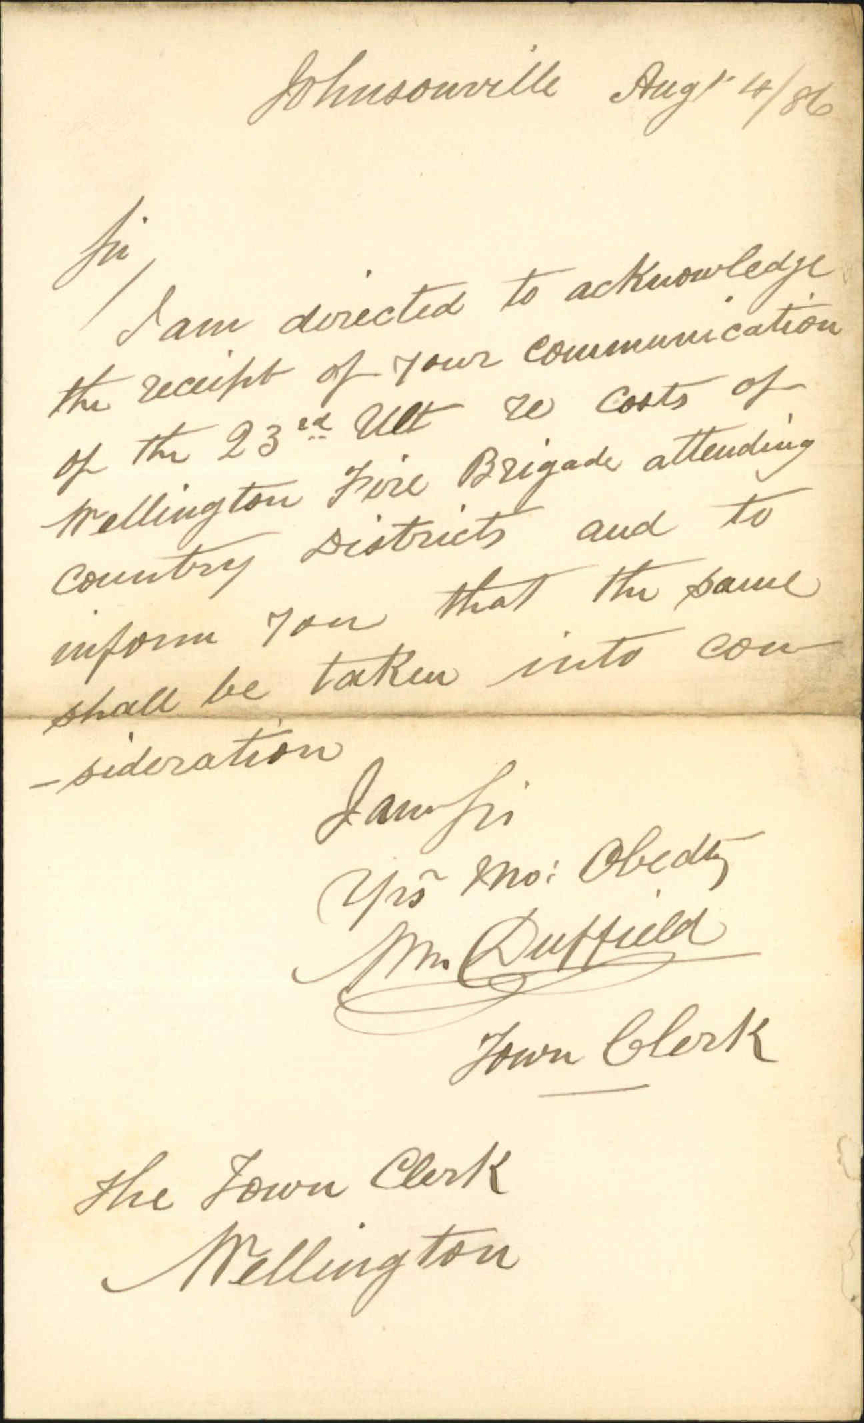 Johnsonville Augt 4/86
Sir
I am directed to acknowledge
the receipt of your communication
of the 23rd Ult re costs of
Wellington Fire Brigade attending
country Districts and to
inform you that the same
shall be taken into con
-sideration
I am Sir
Yrs Mo: Obedtly
Wm. Duffield
Town Clerk
The Town Clerk
Wellington